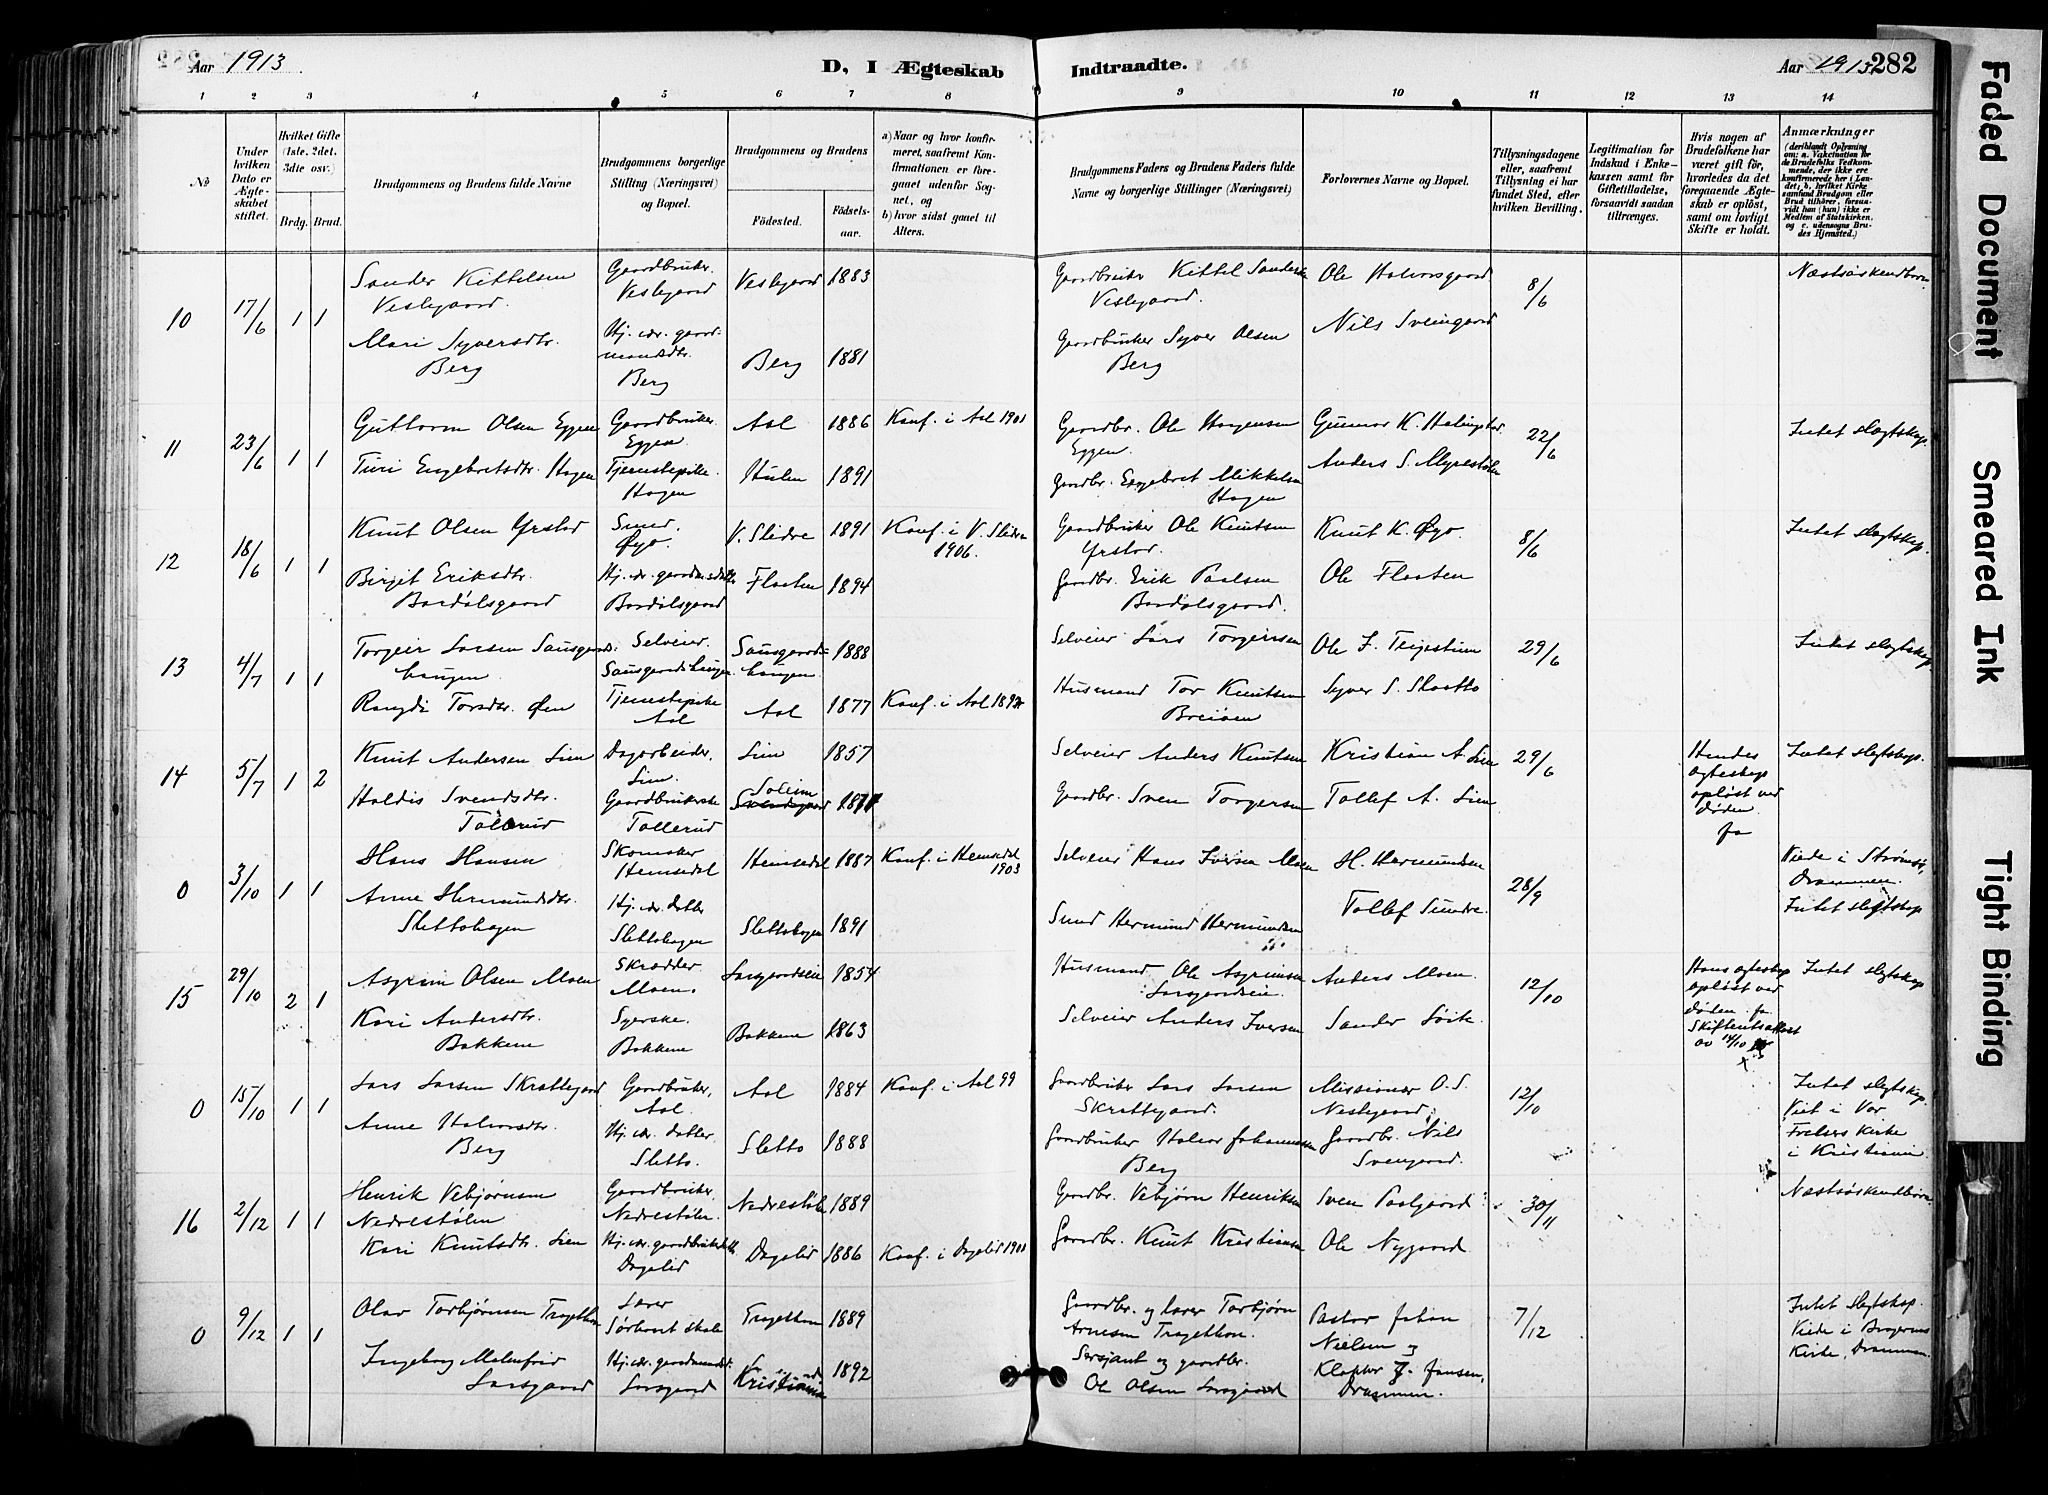 Aar 1913.
D, I Ægteskab
Indtraadte.
Aar 1913. 282
1 2 3 4 5 6 7 8 9 10 11 12 13 14
No
Under hvilken Dato er Ægteskabet stiftet.
Hvilket Gifte (1ste, 2det, 3die osv.)
Brdg. Brud.
Brudgommens og Brudens fulde Navne
Brudgommens borgerlige Stilling (Næringsvei) og Bopæl.
Brudgommens og Brudens
Fødested.
Fødselsaar.
a) Naar og hvor konfirmeret, saafremt Konfirmationen er foregaaet udenfor Sognet, og
b) hvor sidst gaaet til Alters.
Brudgommens Faders og Brudens Faders fulde Navne og borgerlige Stillinger (Næringsvei)
Forlovernes Navne og Bopæl.
Tillysningsdagene eller, saafremt Tillysning ei har fundet Sted, efter hvilken Bevilling.
Legitimation for Indskud i Enkekassen samt for Giftetilladelse, forsaavidt saadan tiltrænges.
Hvis nogen af Brudefolkene har været gift før, hvorledes da det foregaaende Ægteskab er opløst, samt om lovligt Skifte er holdt.
Anmærkninger (deriblandt Oplysning om: a. Vakcination for de Brudefolks Vedkommende, der ikke ere konfirmerede her i Landet; b. hvilket Kirkesamfund Brudgom eller Brud tilhører, forsaavidt han (hun) ikke er Medlem af Statskirken, og c. udensogns Brudes Hjemsted.)
10 17/6 1 1 Sander Kittelsen Veslegaard. Gaardbruker. Veslegaard Veslegaard 1883 Gaardbruker Kittel Sanders. Veslegaard. Ole Halvorsgaard 8/6 Næstsøskendbørn
Mari Syversdtr. Berg Hj. vær. gaardmandsdtr. Berg Berg 1881 Gaardbruker Syver Olsen Berg Nils Sveingaard
11 23/6 1 1 Guttorm Olsen Eggen Gaardbruker. Eggen Aal 1886 Konf. i Aal 1901 Gaardbr. Ole Haagensen Eggen. Gunnar K. 22/6 Intet slegtskap.
Turi Engebretsdtr. Hagen Tjenestepike. Hagen Hulen 1891 Gardbr. Engebret Mikkelsen Hagen Anders S. Myrestølen
12 18/6 1 1 Knut Olsen Yrstad Smed. Øyo. V. Slidre 1891 Konf. i V. Slidre 1906. Gaardbruker Ole Knutsen Yrstad. Knut K. Øyo. 8/6 Intet slegtskap.
Birgit Eriksdtr. Bardølsgaard Hj. vær. gaardmsdatter Bardølsgaard Flaaten 1894 Gaardbr. Erik Paalsen Bardølsgaard. Ole Flaaten
13 4/7 1 1 Torgeir Larsen Sausgaardshaugen. Selveier. Sausgaardshaugen Sausgaardshaugen 1888 Selveier Lars Torgeirsen Ole J. 29/6 Intet slegtskap
Rangdi Torsdtr. Øen Tjenestepike Aal Aal 1877 Konf. i Aal Husmand Tor Knutsen Breiøen Syver S. Slaatto
14 5/7 1 2 Knut Andersen Lien Dagarbeider. Lien. Lien 1857 Selveier Anders Knutsen Kristian A Lien 29/6 Hendes egteskap opløst ved døden. fo Intet slegtskap.
Haldis Svendsdtr. Tollerud Gaardbrukerske Tollerud Soleim 1871 Gaardbr. Sven Torgersen Tollef A. Lien
0 3/10 1 1 Hans Hansen Skomaker Hemsedal Hemsedal 1887 Konf. i Hemsedal 1903 Selveier Hans Iversen Moen H. Hermundsen 28/9 Viede i Strømsø, Drammen. Intet slegtskap
Anne Hermundsdtr. Slettohagen Hj. vær. datter Slettohagen Slettohagen 1891 Smed Hermund Hermundsen Tollef Sundre.
15 29/10 2 1 Asgrim Olsen Moen Skrædder. Moen. Larsgardseie 1854 Husmand Ole Asgrimsen Larsgardseie. Anders Moen. 12/10 Hans egteskap opløst ved døden. fo Skifteretsattest av 14/10 Intet slegtskap
Kari Andersdtr. Bakkene Syerske. Bakkene Bakkene 1863 Selveier Anders Iversen Sander Løik.
0 15/10 1 1 Lars Larsen Skrattegard Gaardbruker, Aal. Aal 1884 Konf. i Aal 99 Gaardbruker Lars Larsen Skrattegaard. Missionær O. S. Neslegaard. 12/10 Intet slegtskap. Viet i Vor Frelsers Kirke i Kristiania
Anne Halvorsdtr. Berg Hj. vær. datter. Sletto. Sletto 1888 Gaardbruker Halvor Johannessen Berg Gaardbr. Nils Svengaard.
16 2/12 1 1 Henrik Vebjørnsen Nedrestølen Gaardbruker, Nedrestølen. Nedrestølen 1889 Gaardbr. Vebjørn Henriksen Sven Paalgaard 30/11 Næstsøskendbørn
Kari Knutsdtr. Lien Hj. vær. gaardbrukdtr. Dagalid Dagalid 1886 Konf. i Dagalid 1901 Gaardbr. Knut Kristiansen Ole Nygaard
0 9/12 1 1 Olav Torbjørnsen Tragethon Lærer Sørhovet skole Tragethon 1889 Gaardbr. og lærer Torbjørn Arnesen Tragethon. Pastor Johan Nielsen og 7/12 Intet slegtskap. Viede i Bragernes Kirke, Drammen.
Ingeborg Malmfrid Larsgaard Hj. vær. gaardmandsdtr. Larsgaard Kristiania 1892 Sersjant og gaardbr. Ole Olsen Larsgaard Klokker J. Jansen, Drammen.
Faded Document
Smeared Ink
Tight Binding